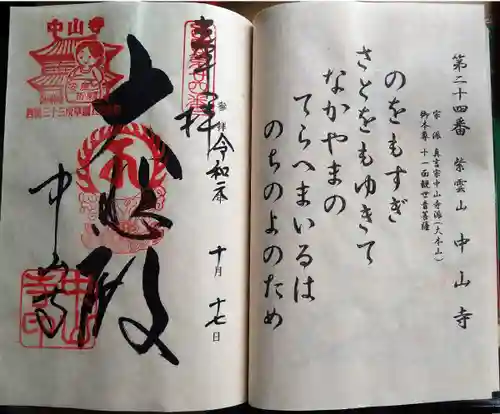 第二十四番 紫雲山 中山寺
宗派 真言宗中山寺派(大本山)
御本尊 十一面観世音菩薩
のをもすぎ
さとをもゆきて
なかやまの
てらへまいるは
のちのよのため
奉拝
参拝
令和二年
十月
十七日
大悲殿
中山寺
中山寺